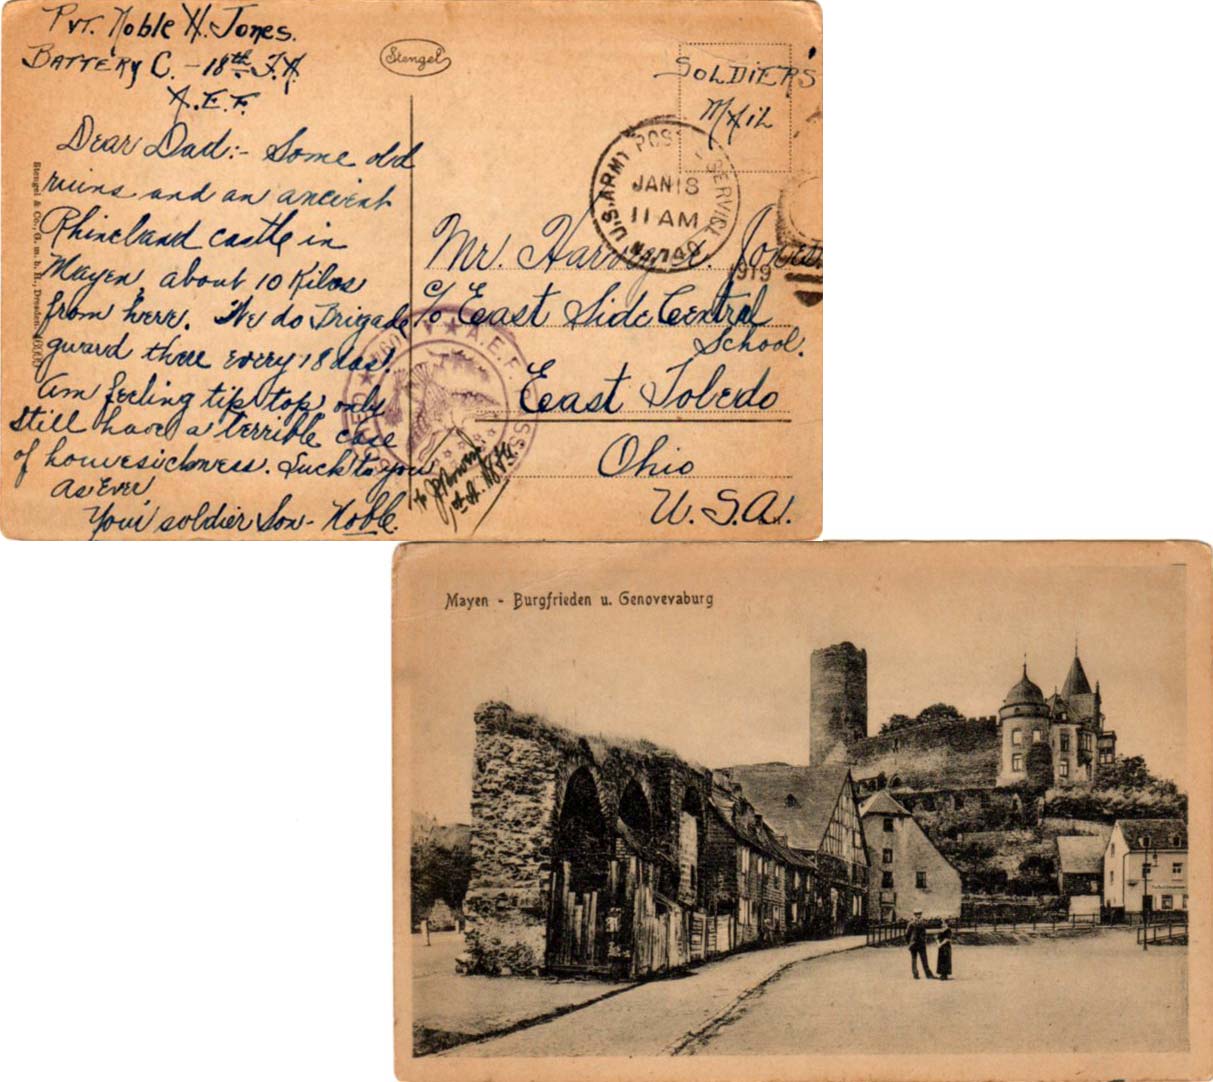 Pvt. Noble H. Jones.
Battery C. - 18th F.A.
A.E.F.
Dear Dad:- Some old
ruins and an ancient
Rhineland castle in
Mayen, about 10 Kilos
from here. We do Brigade
guard there every 18 das.
Am feeling tip top, only
still have a terrible case
of homesickness. Luck to you
as Ever,
Your soldier Son - Noble.
Stengel
Stengel & Co., G. m. b. H., Dresden
Soldiers
Mail
U.S. ARMY POST SERVICE
JAN 18
11 AM
1919
Mr. Jones
c/o East Side Central
School.
East Toledo
Ohio
U.S.A.
A.E.F.
Mayen - Burgfrieden u. Genovevaburg